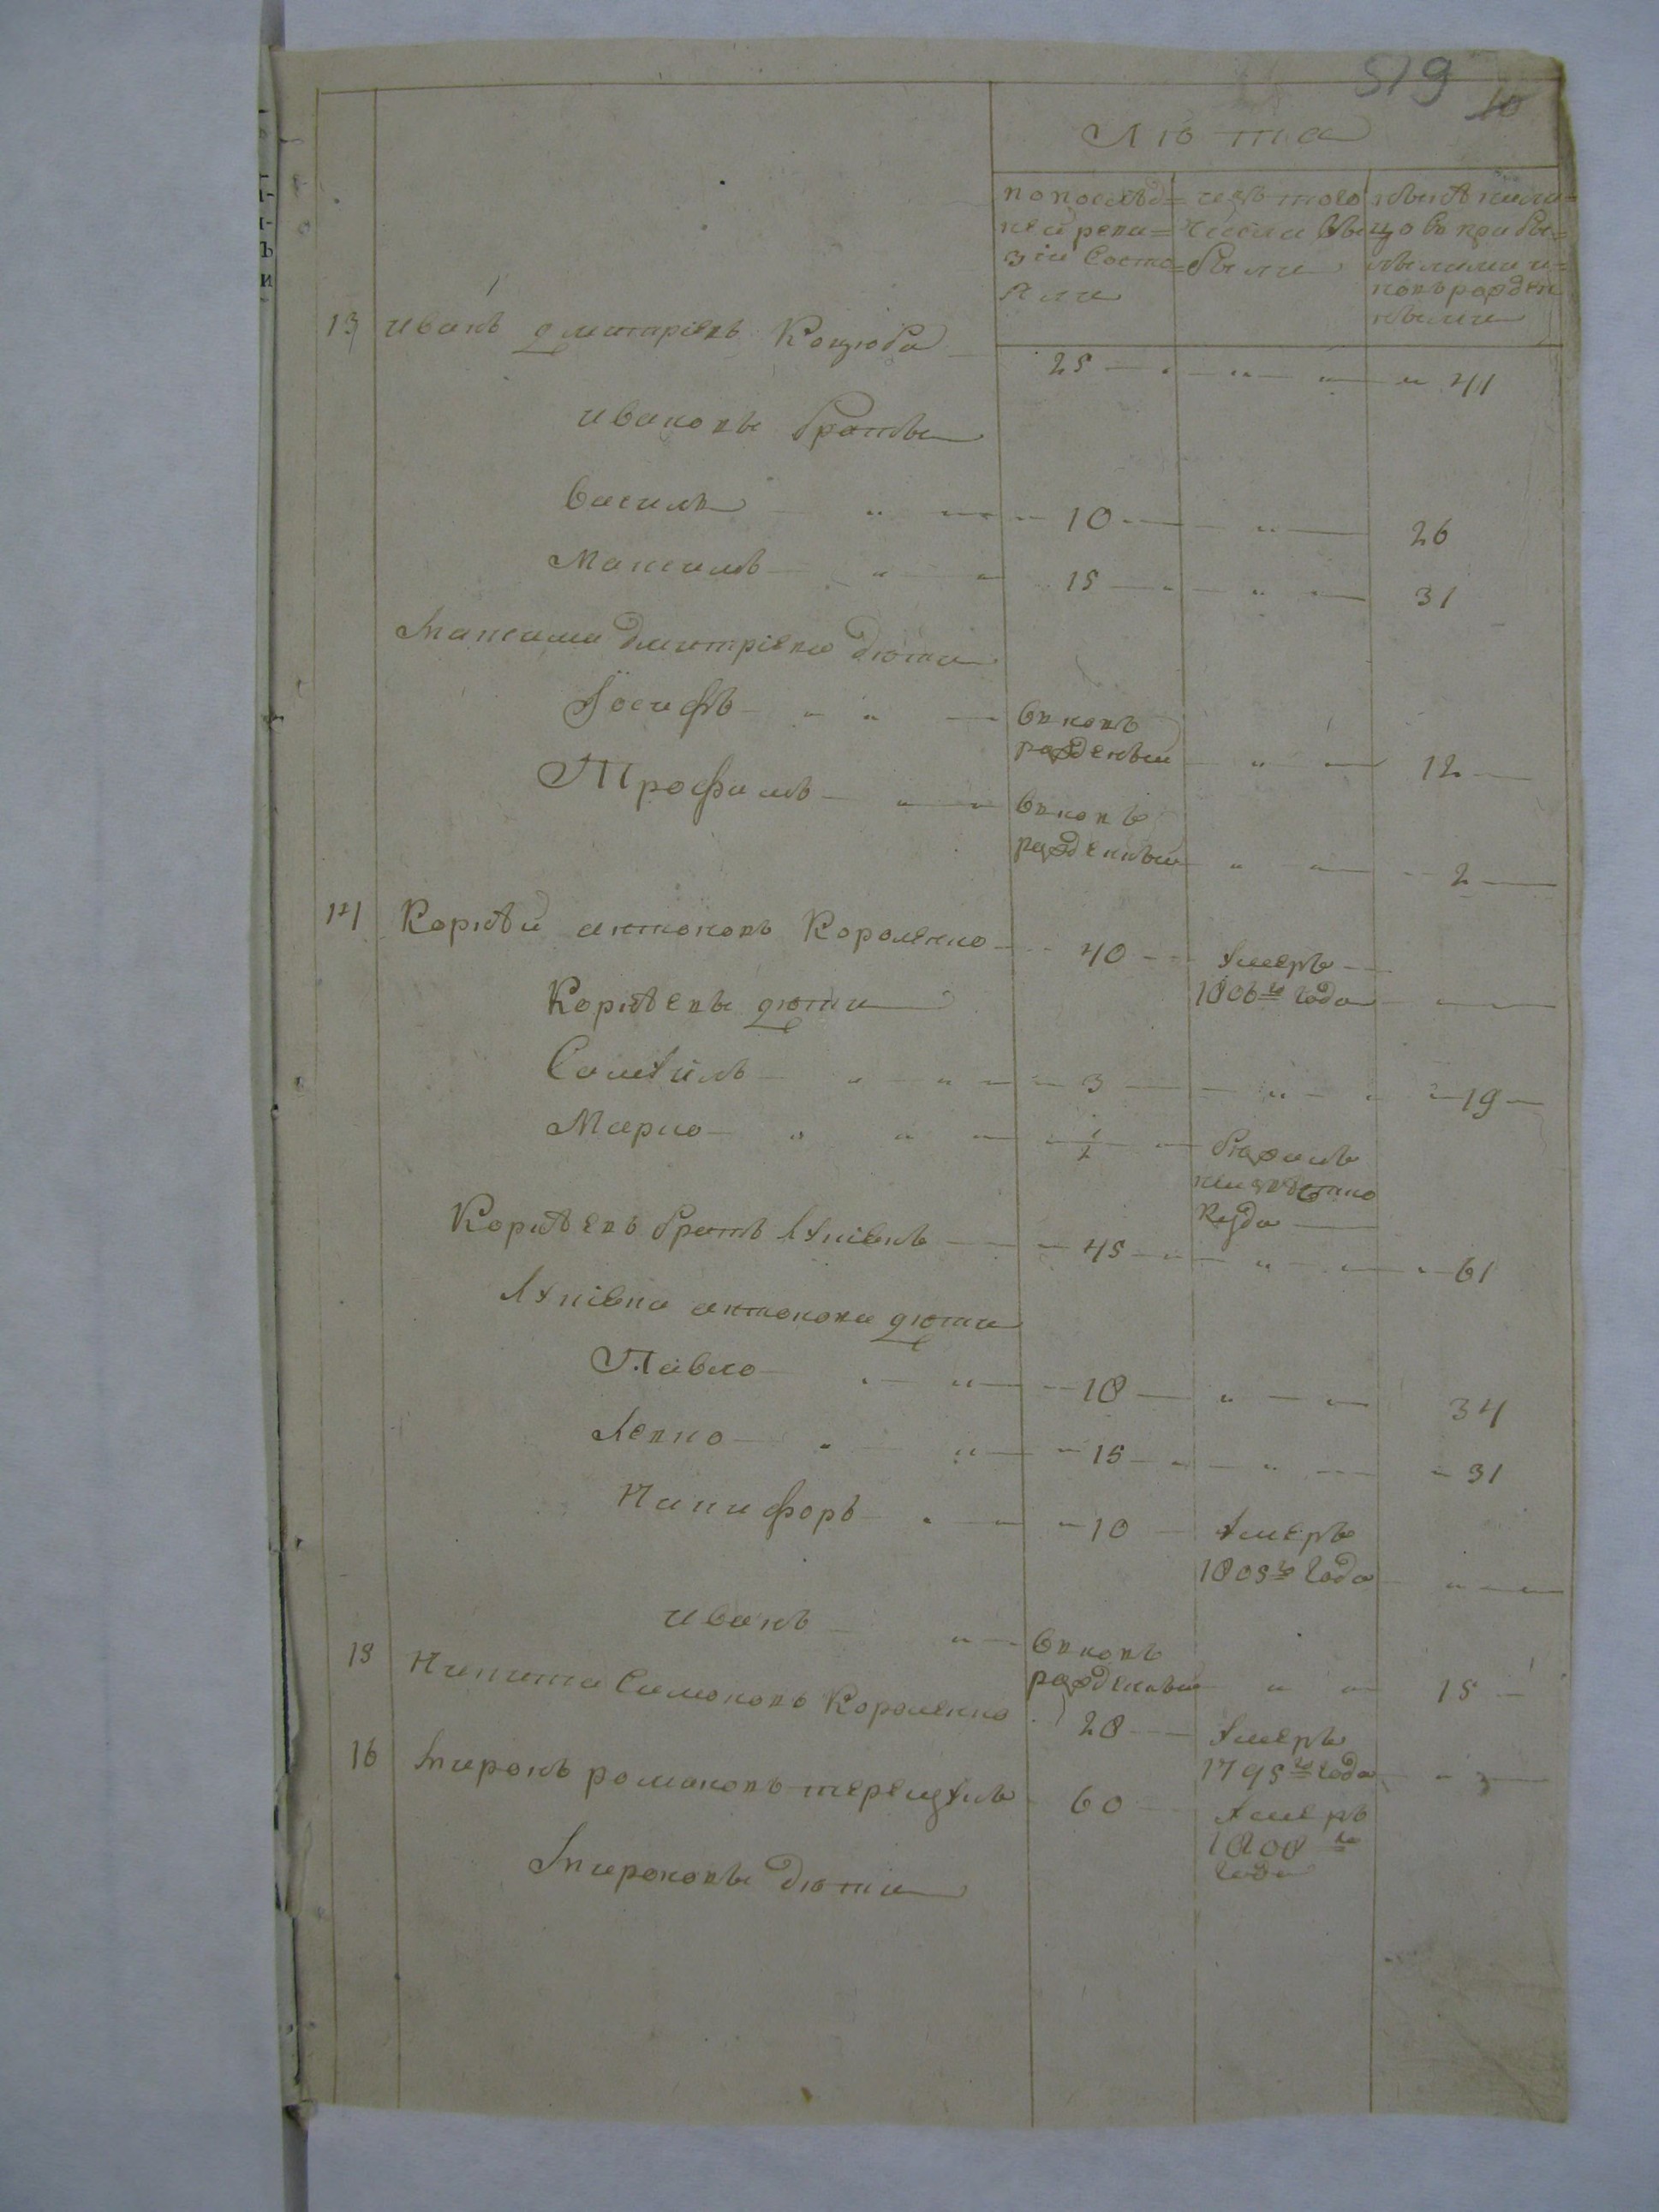 519
10
Лѣта
по послѣд=
ней реви=
зіи состо=
яли
изъ того
числа вы
были
нынѣ на ли=
цо съ прибы=
лыми и
новърожден
ными
13 Иванъ Дмитріевъ Коцюба 25 41
Ивановы братья
Василь 10 26
Максимъ 15 31
Максима Дмитріева дѣти
Іосифъ вновь
рожденый 12
Трофимъ вновь
рожденный 2
14 Корнѣй Антоновъ Короленко 40 умеръ
1806го года
Корнѣевы дѣти
Самуилъ 3 19
Марко 1/2 бѣжалъ
неизвѣстно
куда
Корнѣевъ братъ Лукіянъ 45 61
Лукіяна Антонова дѣти
Павло 18 34
Левко 15 31
Никифоръ 10 умеръ
1805го года
Иванъ вновь
рожденный 15
15 Никита Симоновъ Короленко 28 умеръ
1795го года
16 Миронъ Романовъ Терещукъ 60 умеръ
1800го
года
Мироновы дѣти